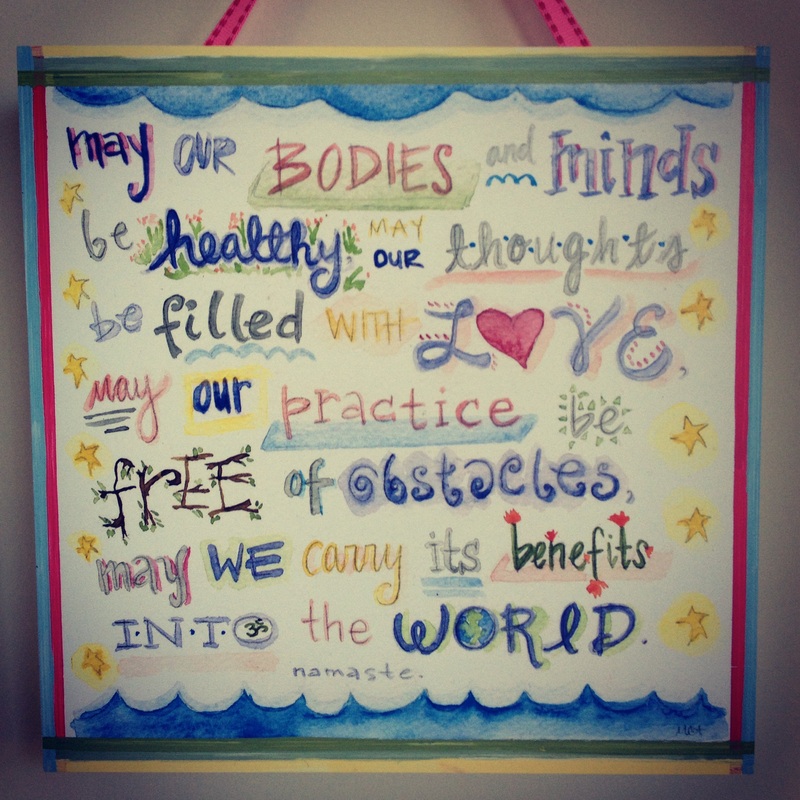 may OUR BODIES and minds
be healthy. MAY OUR thoughts
be filled WITH LOVE,
may our practice be
frEE of obstacles,
may WE carry its benefits
INTॐ the WORlD.
namaste.